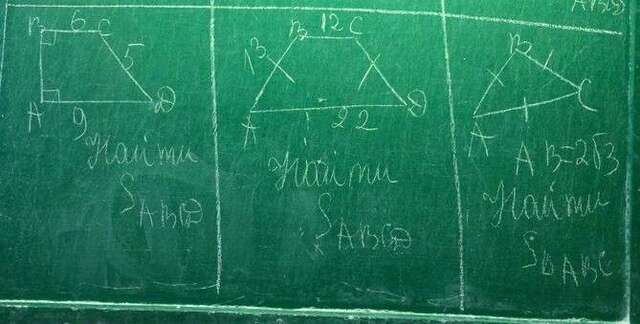 B 6 C
5
A 9 D
Найти
S ABCD
B 12 C
13
A 22 D
Найти
S ABCD
B
C
A
AB=2√3
Найти
S Δ ABC